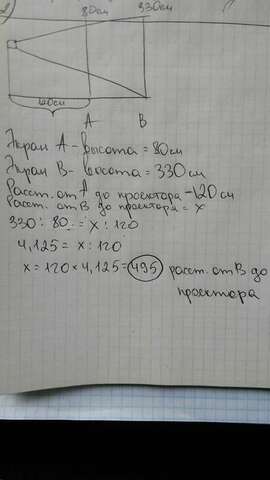 80см 330см
120см
А В
Экран А - высота = 80см
Экран В - высота = 330см
Расст. от А до проектора - 120см
Расст. от В до проектора = х
330 : 80 = х : 120
4,125 = х : 120
х = 120 × 4,125 = 495 расст. от В до
проектора